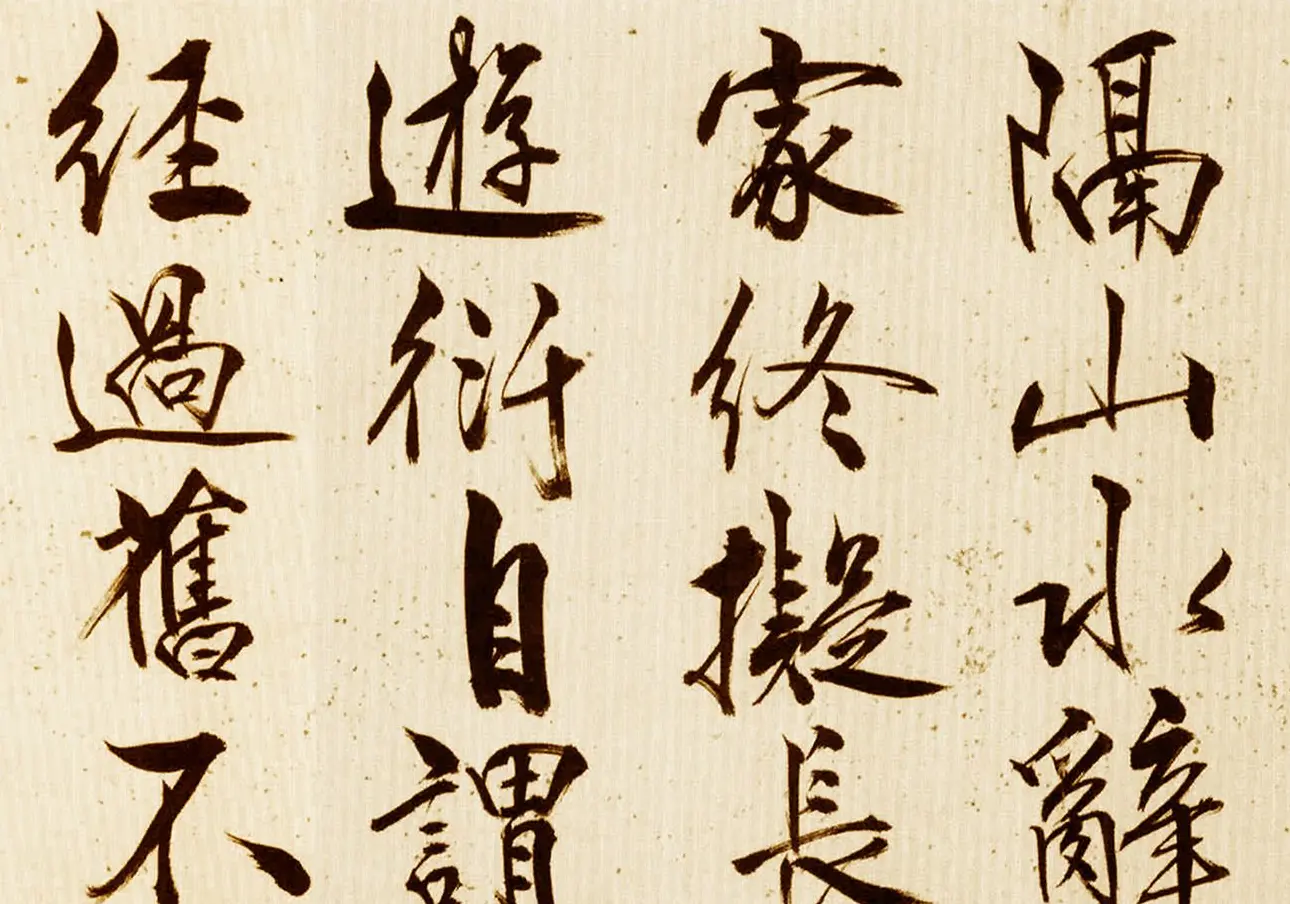 隔山水辭
家終擬長
遊衍自謂
経過舊不